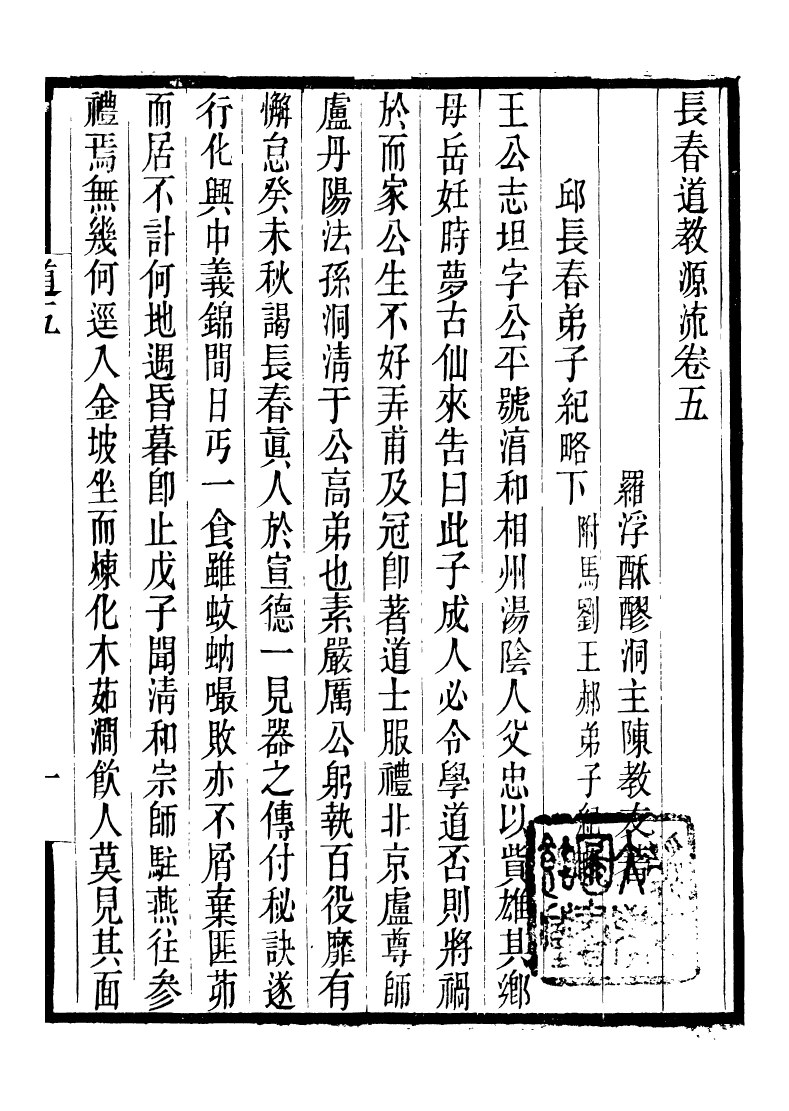 長春道教源流卷五
羅浮酥醪洞主陳教友著
邱長春弟子紀略下 附馬劉王郝弟子紀略
王公志坦字公平號湻和相州湯陰人父忠以貲雄其鄉
母岳妊時夢古仙來告曰此子成人必令學道否則將禍
於而家公生不好弄甫及冠卽著道士服禮北京盧尊師
盧丹陽法孫洞淸于公高弟也素嚴厲公躬執百役靡有
懈怠癸未秋謁長春眞人於宣德一見器之傳付秘訣遂
行化興中義錦間日丐一食雖蚊蚋嘬敗亦不屑棄匪茆
而居不計何地遇昏暮卽止戊子聞淸和宗師駐燕往參
禮焉無幾何逕入金坡坐而煉化木茹澗飮人莫見其面
道五
一